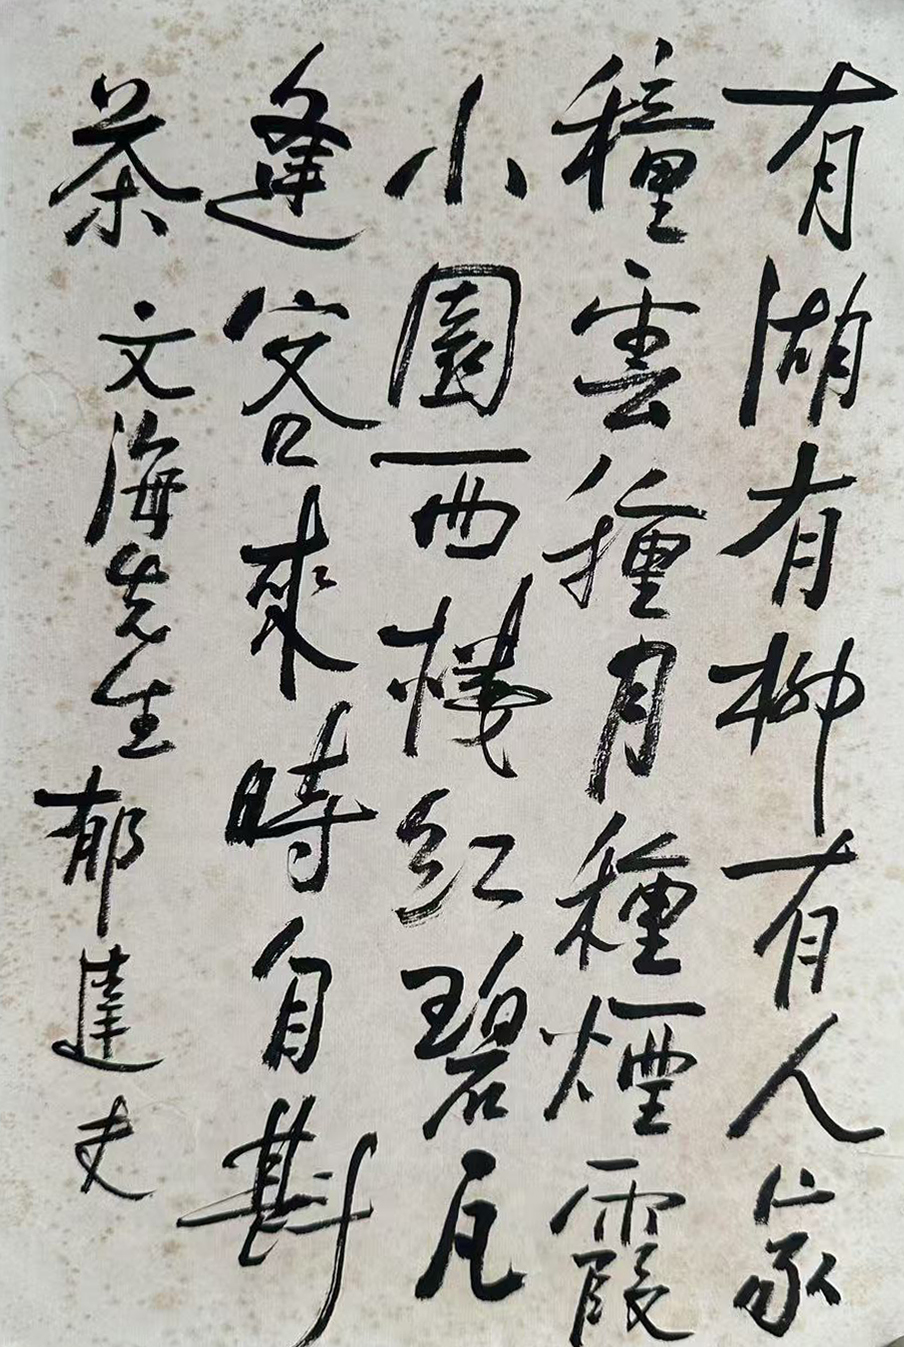 有湖有柳有人家
種雲種月種煙霞
小園西樓紅碧瓦
逢客來時自斟
茶 文海先生郁達夫